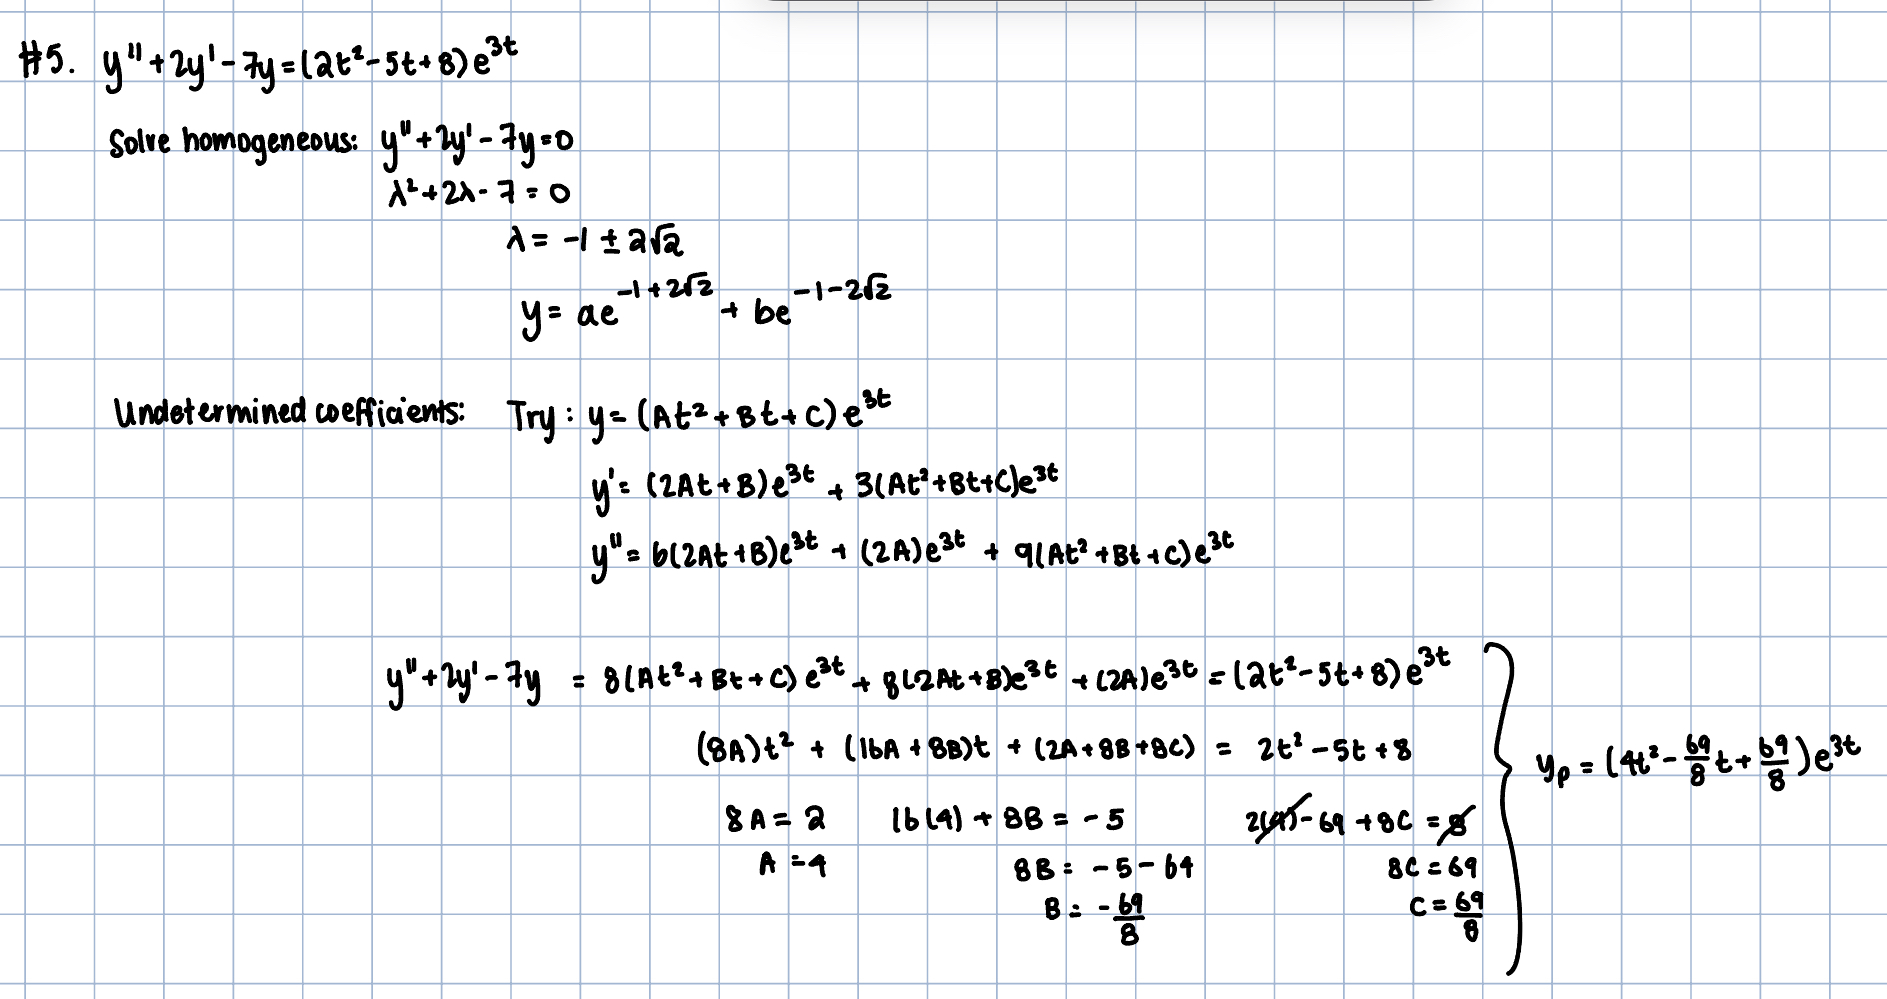 #5. y'' + 2y' - 7y = (2t² - 5t + 8) e^{3t}
Solve homogeneous: y'' + 2y' - 7y = 0
λ² + 2λ - 7 = 0
λ = -1 ± 2√2
y = ae^{-1+2√2} + be^{-1-2√2}
Undetermined coefficients: Try: y = (At² + Bt + C) e^{3t}
y' = (2At + B)e^{3t} + 3(At² + Bt + C)e^{3t}
y'' = 6(2At + B)e^{3t} + (2A)e^{3t} + 9(At² + Bt + C)e^{3t}
y'' + 2y' - 7y = 8(At² + Bt + C) e^{3t} + 8(2At + B)e^{3t} + (2A)e^{3t} = (2t² - 5t + 8) e^{3t}
(8A)t² + (16A + 8B)t + (2A + 8B + 8C) = 2t² - 5t + 8
y_p = (4t² - 69/8 t + 69/8) e^{3t}
8A = 2 16(4) + 8B = -5 2(4) - 69 + 8C = 8
A = 4 8B = -5 - 64 8C = 69
B = -69/8 C = 69/8